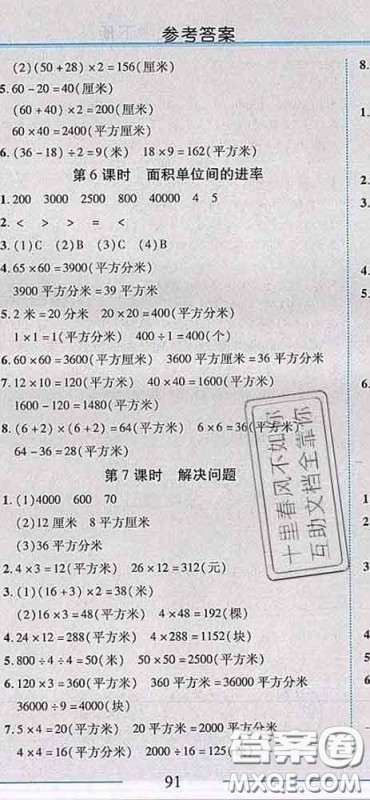 参考答案
(2)(50+28)×2=156(厘米)
5.60-20=40(厘米)
(60+40)×2=200(厘米)
60×40=2400(平方厘米)
6.(36-18)÷2=9(米) 18×9=162(平方米)
第6课时 面积单位间的进率
1.200 3000 2500 800 40000 4 5
2.< > > = <
3.(1)C (2)B (3)C (4)B
4.65×60=3900(平方分米)
3900平方分米=39平方米
5.2米=20分米 20×20=400(平方分米)
1×1=1(平方分米) 400÷1=400(个)
6.60×60=3600(平方厘米) 3600平方厘米=36平方分米
7.12×10=120(平方米) 40×40=1600(平方米)
1600-120=1480(平方米)
8.(6+2)×(6+2)=64(平方分米) 6×6=36(平方分米)
64-36=28(平方分米)
第7课时 解决问题
1.(1)4000 600 70
(2)12厘米 8平方厘米
(3)36平方分米
2.4×3=12(平方米) 26×12=312(元)
3.(1)(16+3)×2=38(米)
(2)16×3=48(平方米) 4×48=192(棵)
4.24×12=288(平方米) 4×288=1152(块)
5.800÷4÷4=50(块)
6.120×3=360(平方米) 360平方米=36000平方分米
36000÷9=4000(块)
7.5×4=20(平方分米) 20平方分米=2000平方厘米
4×4=16(平方厘米) 2000÷16=125(
91
8.
1.
十里春风不如你
互助文档全靠你
答案圈
MXQE.COM